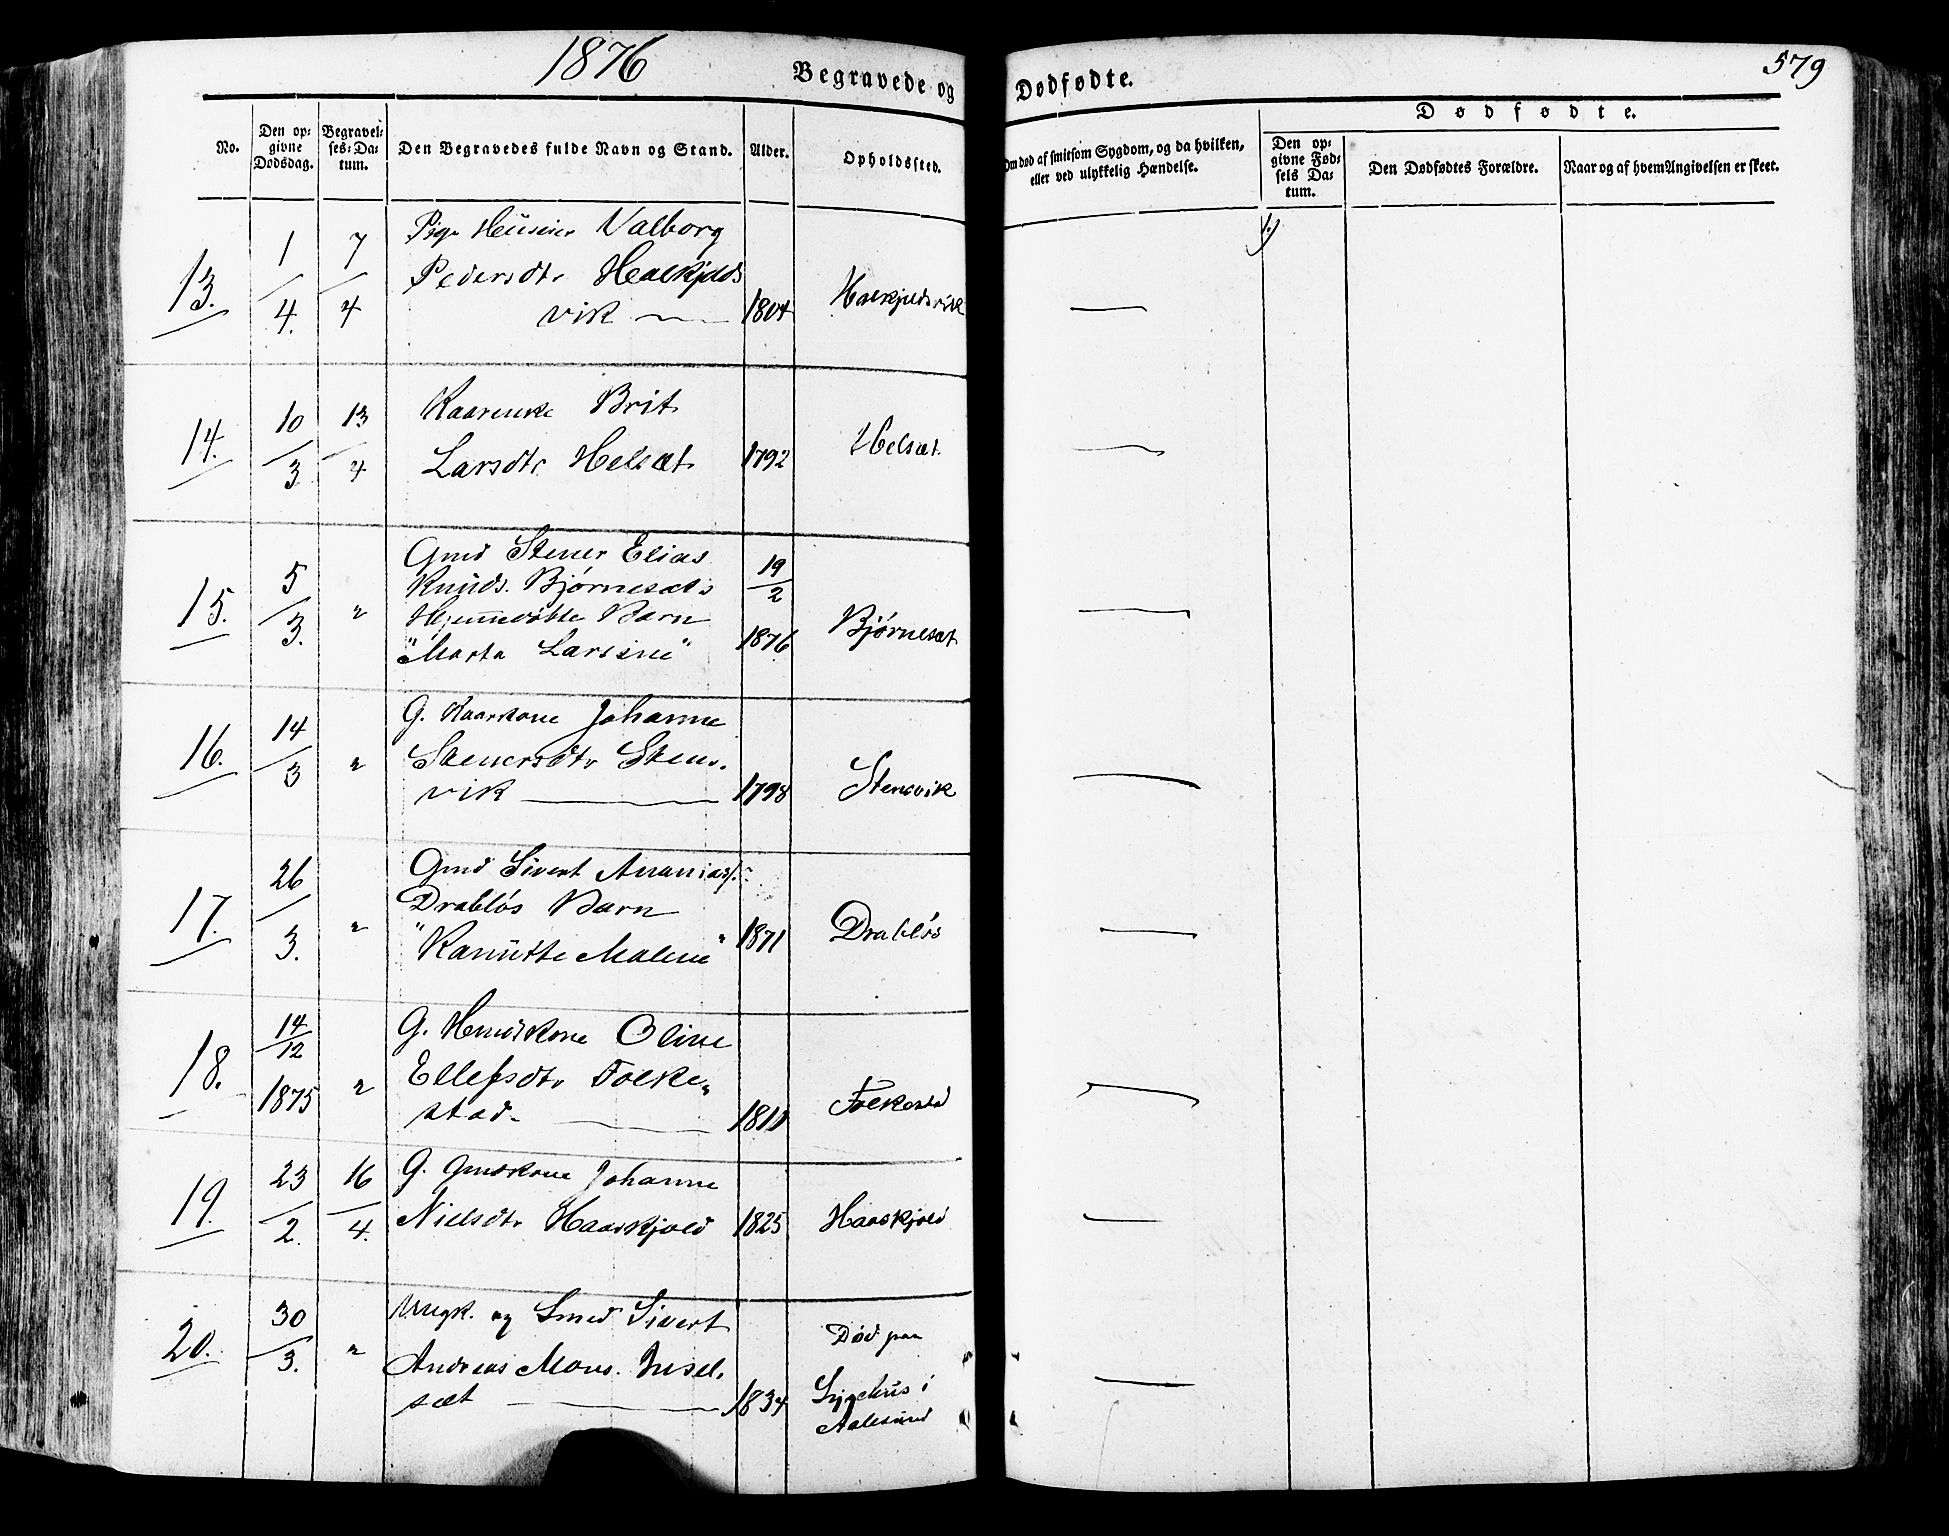 1876
579
Begravede og Dødfødte.
No.
Den opgivne Dødsdag.
Begravelses-Datum.
Den Begravedes fulde Navn og Stand.
Alder.
Opholdssted.
Om død af smitsom Sygdom, og da hvilken, eller ved ulykkelig Hændelse.
Dødfødte.
Den opgivne Fødsels Datum.
Den Dødfødtes Forældre.
Naar og af hvem Angivelsen er skeet.
13. 1/4. 7/4
Pige Valborg
Pedersdtr
vik 1804
14. 10/3 13/4
Brit
Larsdtr Helsæt 1792 Helsæt.
15. 5/3. "
Gmd Stener Elias
Knuds. Bjørnesæts 19/2
Barn
"Marta Larsine" 1876 Bjørnesæt
16. 14/3 "
G. Kaarkone Johanne
Stenersdtr Stens-
vik 1798 Stensvik
17. 26/3. "
Gmd Sivert Ananiass.
Drabløs Barn
"Kanutte Malene" 1871 Drabløs
18. 14/12 1875 "
G. Oline
Ellefsdtr Folke-
stad. Folkestad
19. 23/2. 16/4.
G. Gmdskone Johanne
Nielsdtr Haaskjold 1825 Haaskjold
20. 30/3. "
Ungk. og Smed Sivert
Andreas Mons. Insel-
sæt 1834
Død paa
Sygehus i
Aalesund